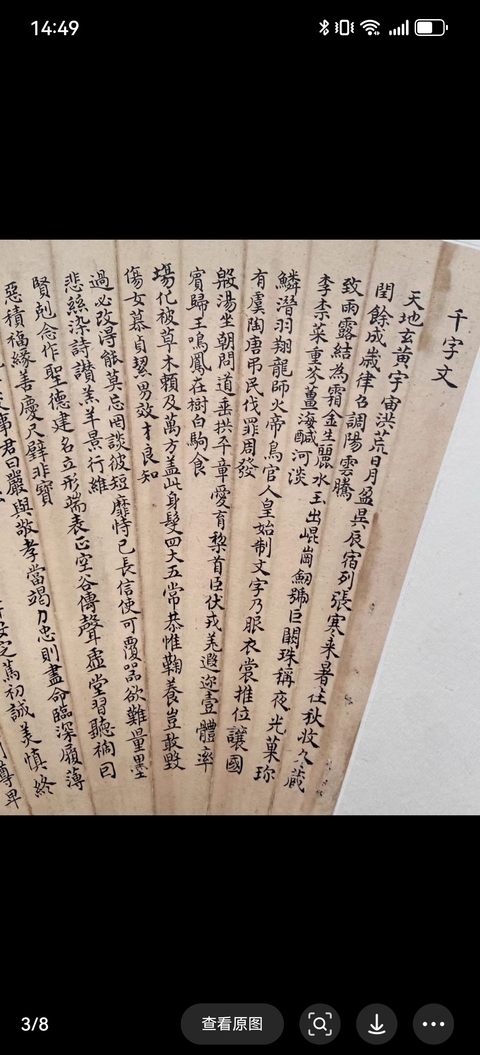 14:49
千字文
天地玄黄宇宙洪荒日月盈昃辰宿列張寒来暑往秋收冬藏
閏餘成歲律召調陽雲騰
致雨露結為霜金生麗水玉出崐崗劔號巨闕珠稱夜光菓珍
李柰菜重芥薑海鹹河淡
鱗潛羽翔龍師火帝鳥官人皇始制文字乃服衣裳推位讓國
有虞陶唐吊民伐罪周發
殷湯坐朝問道垂拱平章愛育黎首臣伏戎羌遐迩壹體率
賓歸王鳴鳳在樹白駒食
場化被草木賴及萬方盖此身髮四大五常恭惟鞠養豈敢毀
傷女慕貞絜男效才良知
過必改得能莫忘罔談彼短靡恃己長信使可覆器欲難量墨
悲絲染詩讚羔羊景行維
賢剋念作聖德建名立形端表正空谷傳聲虛堂習聽禍因
惡積福緣善慶尺璧非寶
事君曰嚴與敬孝當竭力忠則盡命臨深履薄
定篤初誠美慎終
尊卑
3/8
查看原图